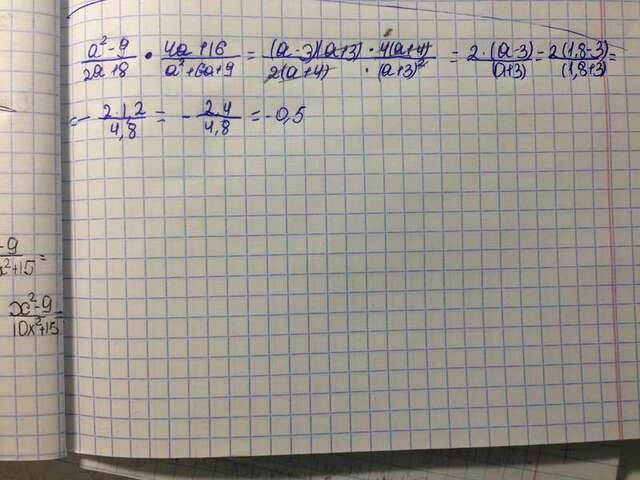 \frac{a^2-9}{2a+8} \cdot \frac{4a+16}{a^2+6a+9} = \frac{(a-3)(a+3) \cdot 4(a+4)}{2(a+4) \cdot (a+3)^2} = \frac{2 \cdot (a-3)}{(a+3)} = \frac{2(1,8-3)}{(1,8+3)} =
= -\frac{2 \cdot 1,2}{4,8} = -\frac{2,4}{4,8} = -0,5
\frac{-9}{x^2+15} =
\frac{x^2-9}{10x^2+15} =